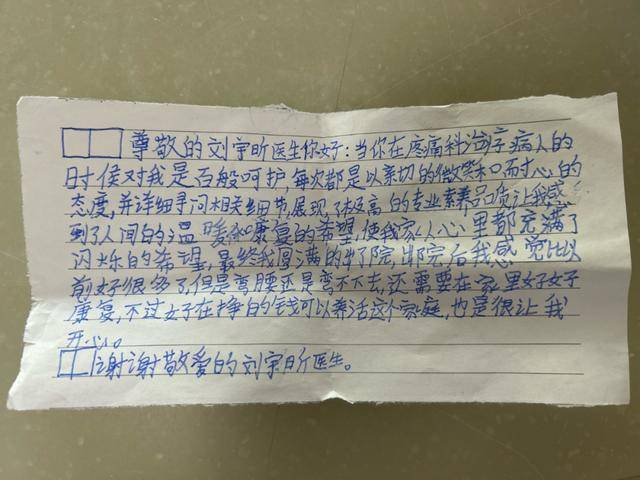 尊敬的刘宇昕医生你好：当你在疼痛科治疗病人的
时侯对我是百般呵护，每次都是以亲切的微笑和耐心的
态度，并详细寻问相关细节，展现了极高的专业素养品质让我感
到了人间的温暖和康复的希望，使我家人心里都充满了
闪烁的希望，最终我圆满的出了院，出院后我感觉比以
前好很多了，但是弯腰还是弯不下去，还需要在家里好好
康复，不过好在挣的钱可以养活这个家庭，也是很让我
开心。
谢谢敬爱的刘宇昕医生。